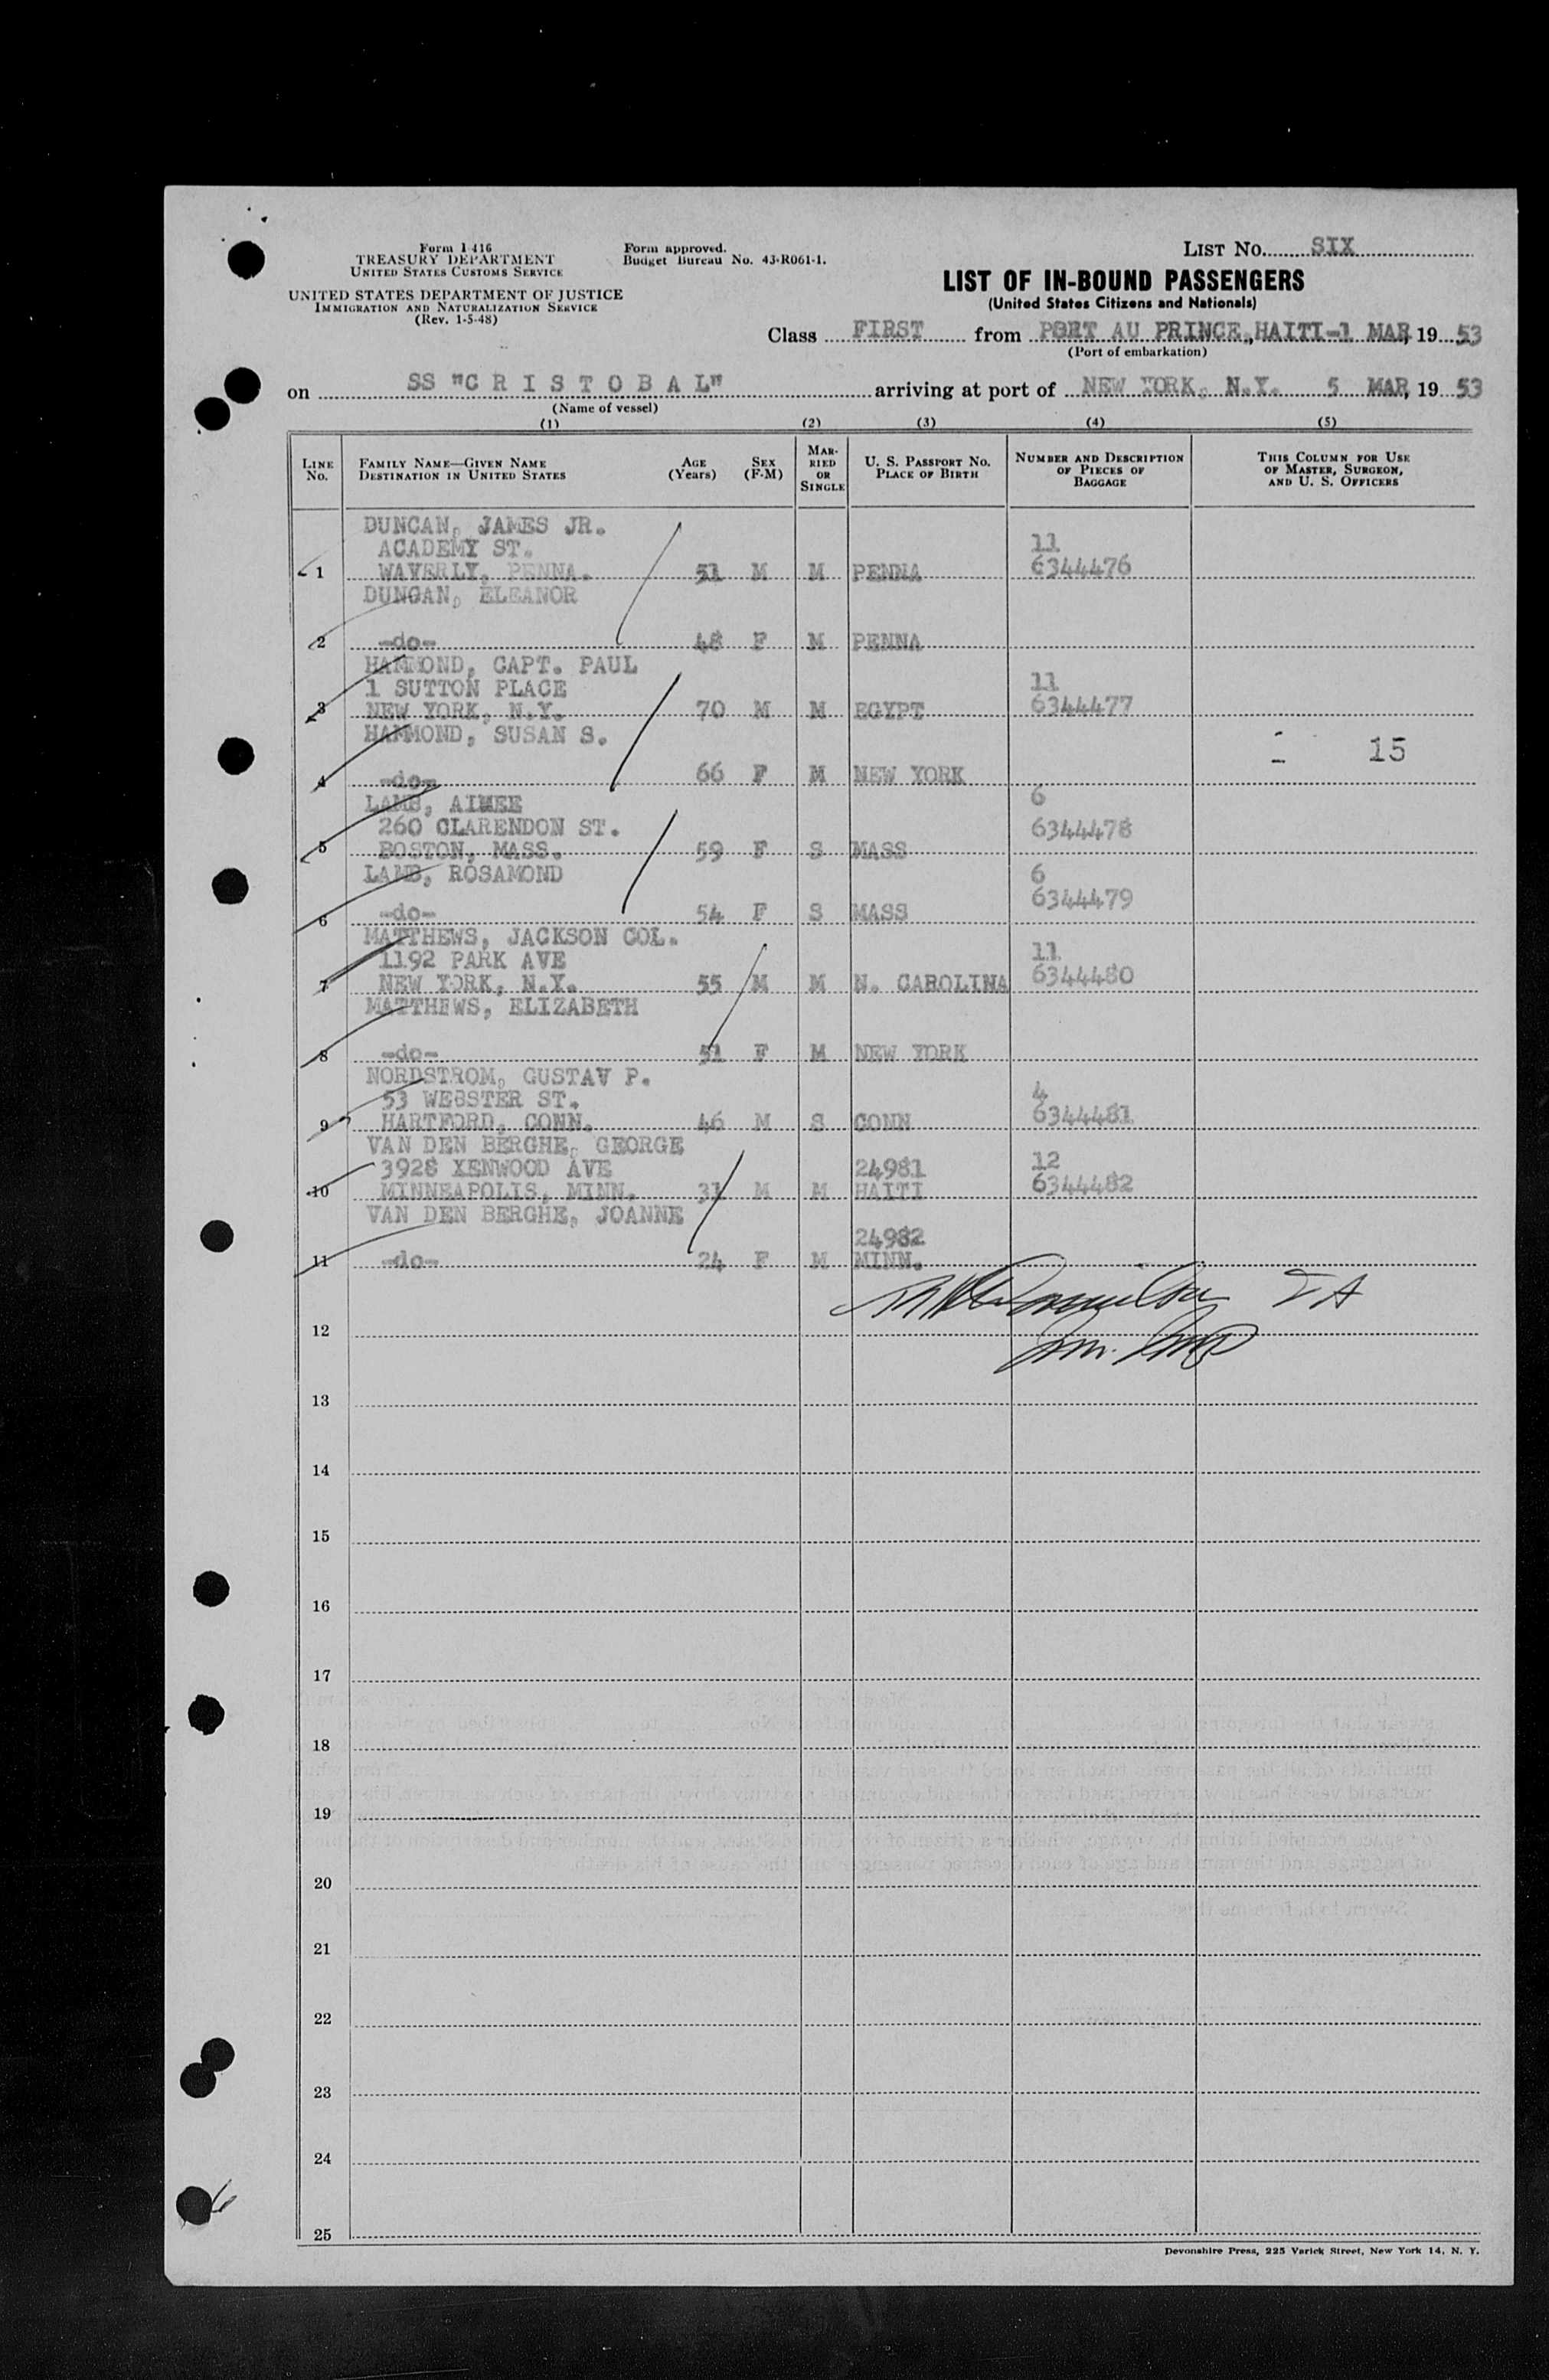 Form I-416
TREASURY DEPARTMENT
UNITED STATES CUSTOMS SERVICE
UNITED STATES DEPARTMENT OF JUSTICE
IMMIGRATION AND NATURALIZATION SERVICE
(Rev. 1-5-48)
Form approved.
Budget Bureau No. 43-R061-1.
LIST No. SIX
LIST OF IN-BOUND PASSENGERS
(United States Citizens and Nationals)
Class FIRST from PORT AU PRINCE, HAITI-1 MAR, 19 53
(Port of embarkation)
on SS "C R I S T O B A L" arriving at port of NEW YORK, N.Y. 5 MAR, 19 53
(Name of vessel)
(1) (2) (3) (4) (5)
LINE No. FAMILY NAME—GIVEN NAME DESTINATION IN UNITED STATES AGE (Years) SEX (F-M) MARRIED OR SINGLE U. S. PASSPORT No. PLACE OF BIRTH NUMBER AND DESCRIPTION OF PIECES OF BAGGAGE THIS COLUMN FOR USE OF MASTER, SURGEON, AND U. S. OFFICERS
DUNCAN, JAMES JR.
ACADEMY ST. 11
1 WAVERLY, PENNA. 51 M M PENNA 6344476
DUNCAN, ELEANOR
2 -do- 48 F M PENNA
HAMMOND, CAPT. PAUL
1 SUTTON PLACE 11
3 NEW YORK, N.Y. 70 M M EGYPT 6344477
HAMMOND, SUSAN S.
15
4 -do- 66 F M NEW YORK
LAMB, AIMEE 6
260 CLARENDON ST. 6344478
5 BOSTON, MASS. 59 F S MASS
LAMB, ROSAMOND 6
6344479
6 -do- 54 F S MASS
MATTHEWS, JACKSON COL.
1192 PARK AVE 11
7 NEW YORK, N.Y. 55 M M N. CAROLINA 6344480
MATTHEWS, ELIZABETH
8 -do- 51 F M NEW YORK
NORDSTROM, GUSTAV P.
53 WEBSTER ST. 4
9 HARTFORD, CONN. 46 M S CONN 6344481
VAN DEN BERGHE, GEORGE
3928 XENWOOD AVE 24981 12
10 MINNEAPOLIS, MINN. 31 M M HAITI 6344482
VAN DEN BERGHE, JOANNE
24982
11 -do- 24 F M MINN.
12
13
14
15
16
17
18
19
20
21
22
23
24
25
Devonshire Press, 225 Varick Street, New York 14, N. Y.